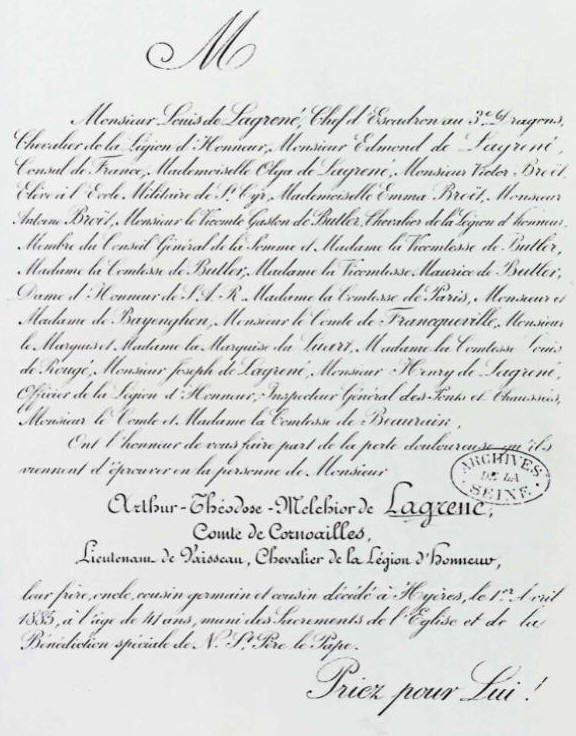 M
Monsieur Louis de Lagrené, Chef d'Escadron au 3e Dragons,
Chevalier de la Légion d'Honneur, Monsieur Edmond de Lagrené,
Consul de France, Mademoiselle Olga de Lagrené, Monsieur Victor Broët,
Elève à l'Ecole Militaire de St Cyr, Mademoiselle Emma Broët, Monsieur
Antoine Broët, Monsieur le Vicomte Gaston de Butler, Chevalier de la Légion d'honneur,
Membre du Conseil Général de la Somme et Madame la Vicomtesse de Butler,
Madame la Comtesse de Butler, Madame la Vicomtesse Maurice de Butler,
Dame d'Honneur de S. A. R. Madame la Comtesse de Paris, Monsieur et
Madame de Bayenghen, Monsieur le Comte de Francqueville, Monsieur
le Marquis et Madame la Marquise du Luart, Madame la Comtesse Louis
de Rougé, Monsieur Joseph de Lagrené, Monsieur Henry de Lagrené,
Officier de la Légion d'Honneur, Inspecteur Général des Ponts et Chaussées,
Monsieur le Comte et Madame la Comtesse de Beaurain,
Ont l'honneur de vous faire part de la perte douloureuse qu'ils
viennent d'éprouver en la personne de Monsieur
ARCHIVES
DE LA
SEINE
Arthur-Théodose-Melchior de Lagrené,
Comte de Cornoailles,
Lieutenant de Vaisseau, Chevalier de la Légion d'honneur,
leur frère, oncle, cousin germain et cousin décédé à Hyères, le 1er Avril
1885, à l'âge de 41 ans, muni des Sacrements de l'Eglise et de la
Bénédiction spéciale de N. St Père le Pape.
Priez pour Lui !